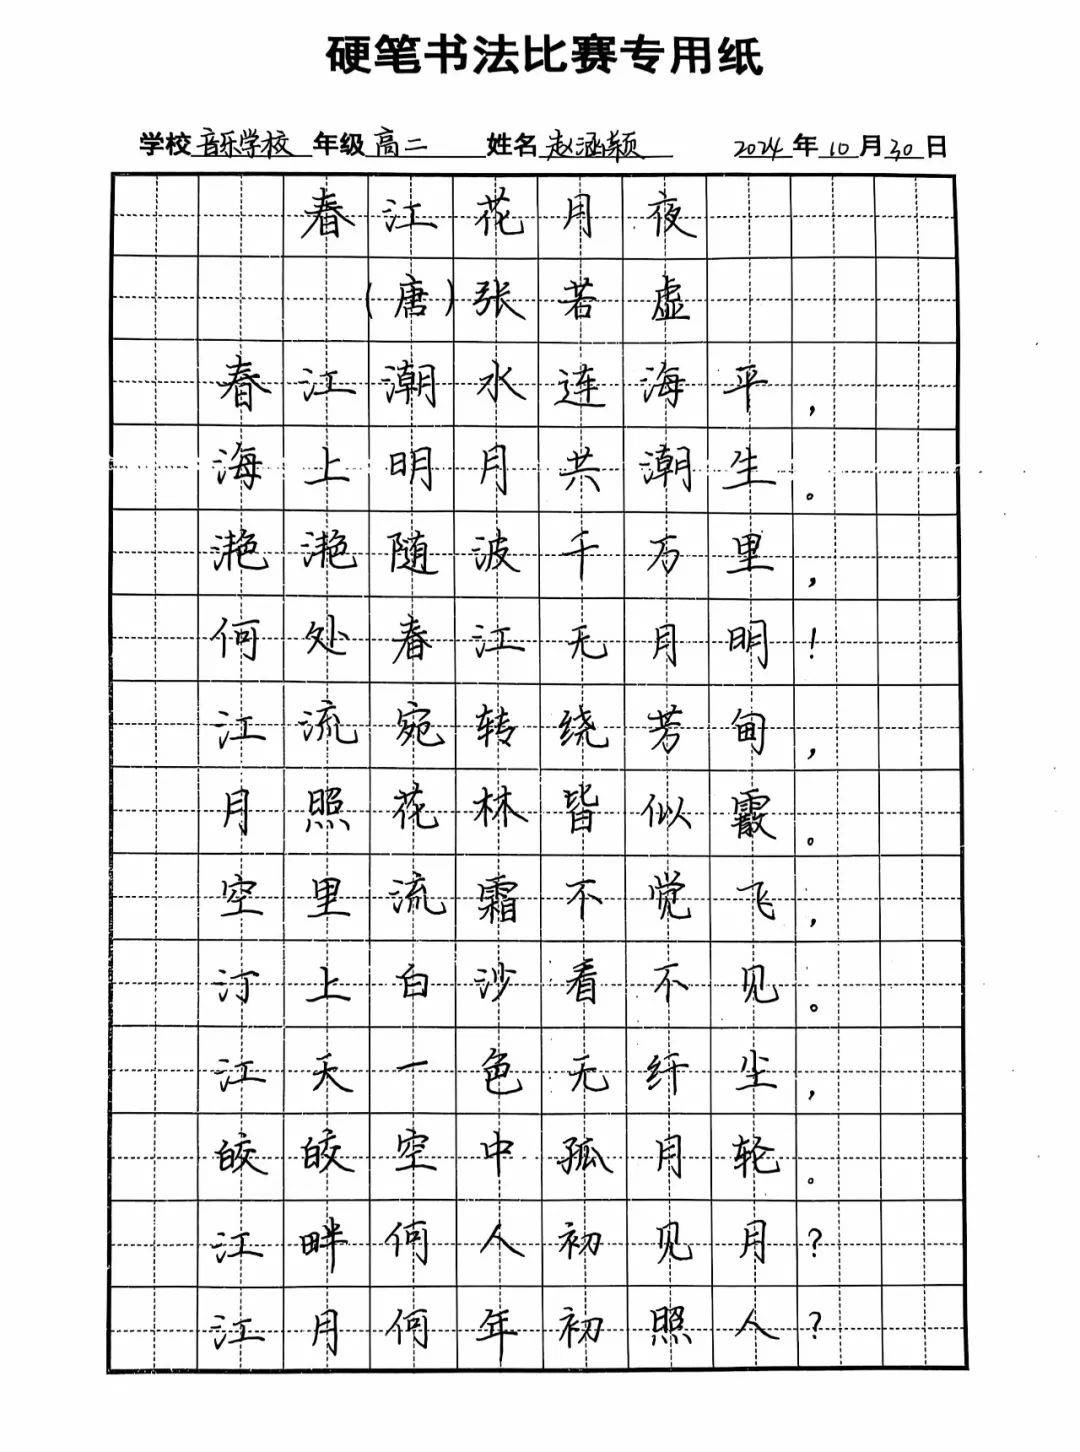 硬笔书法比赛专用纸
学校 音乐学校 年级 高二 姓名 赵涵颖 2024 年 10 月 30 日
春江花月夜
(唐)张若虚
春江潮水连海平,
海上明月共潮生。
滟滟随波千万里,
何处春江无月明!
江流宛转绕芳甸,
月照花林皆似霰。
空里流霜不觉飞,
汀上白沙看不见。
江天一色无纤尘,
皎皎空中孤月轮。
江畔何人初见月?
江月何年初照人?